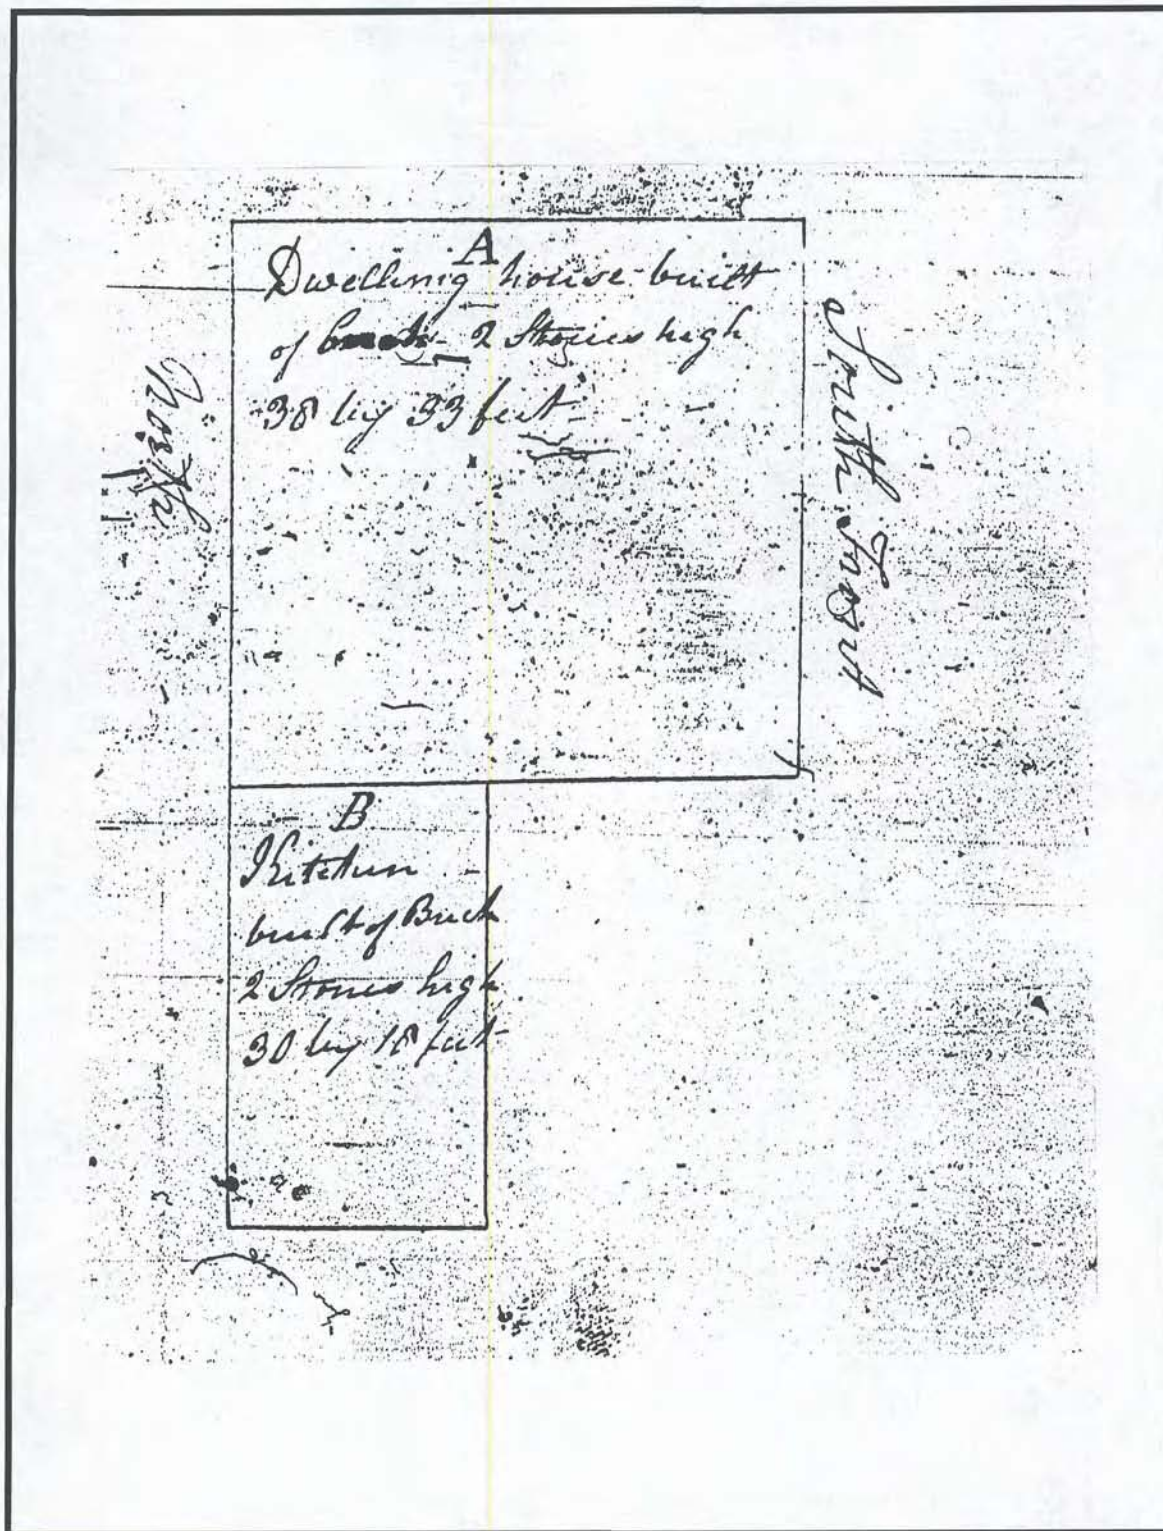 A
Dwelling house built
of brick 2 Stories high
38 by 33 feet
North
South Front
B
Kitchen
built of Brick
2 Stories high
30 by 18 feet